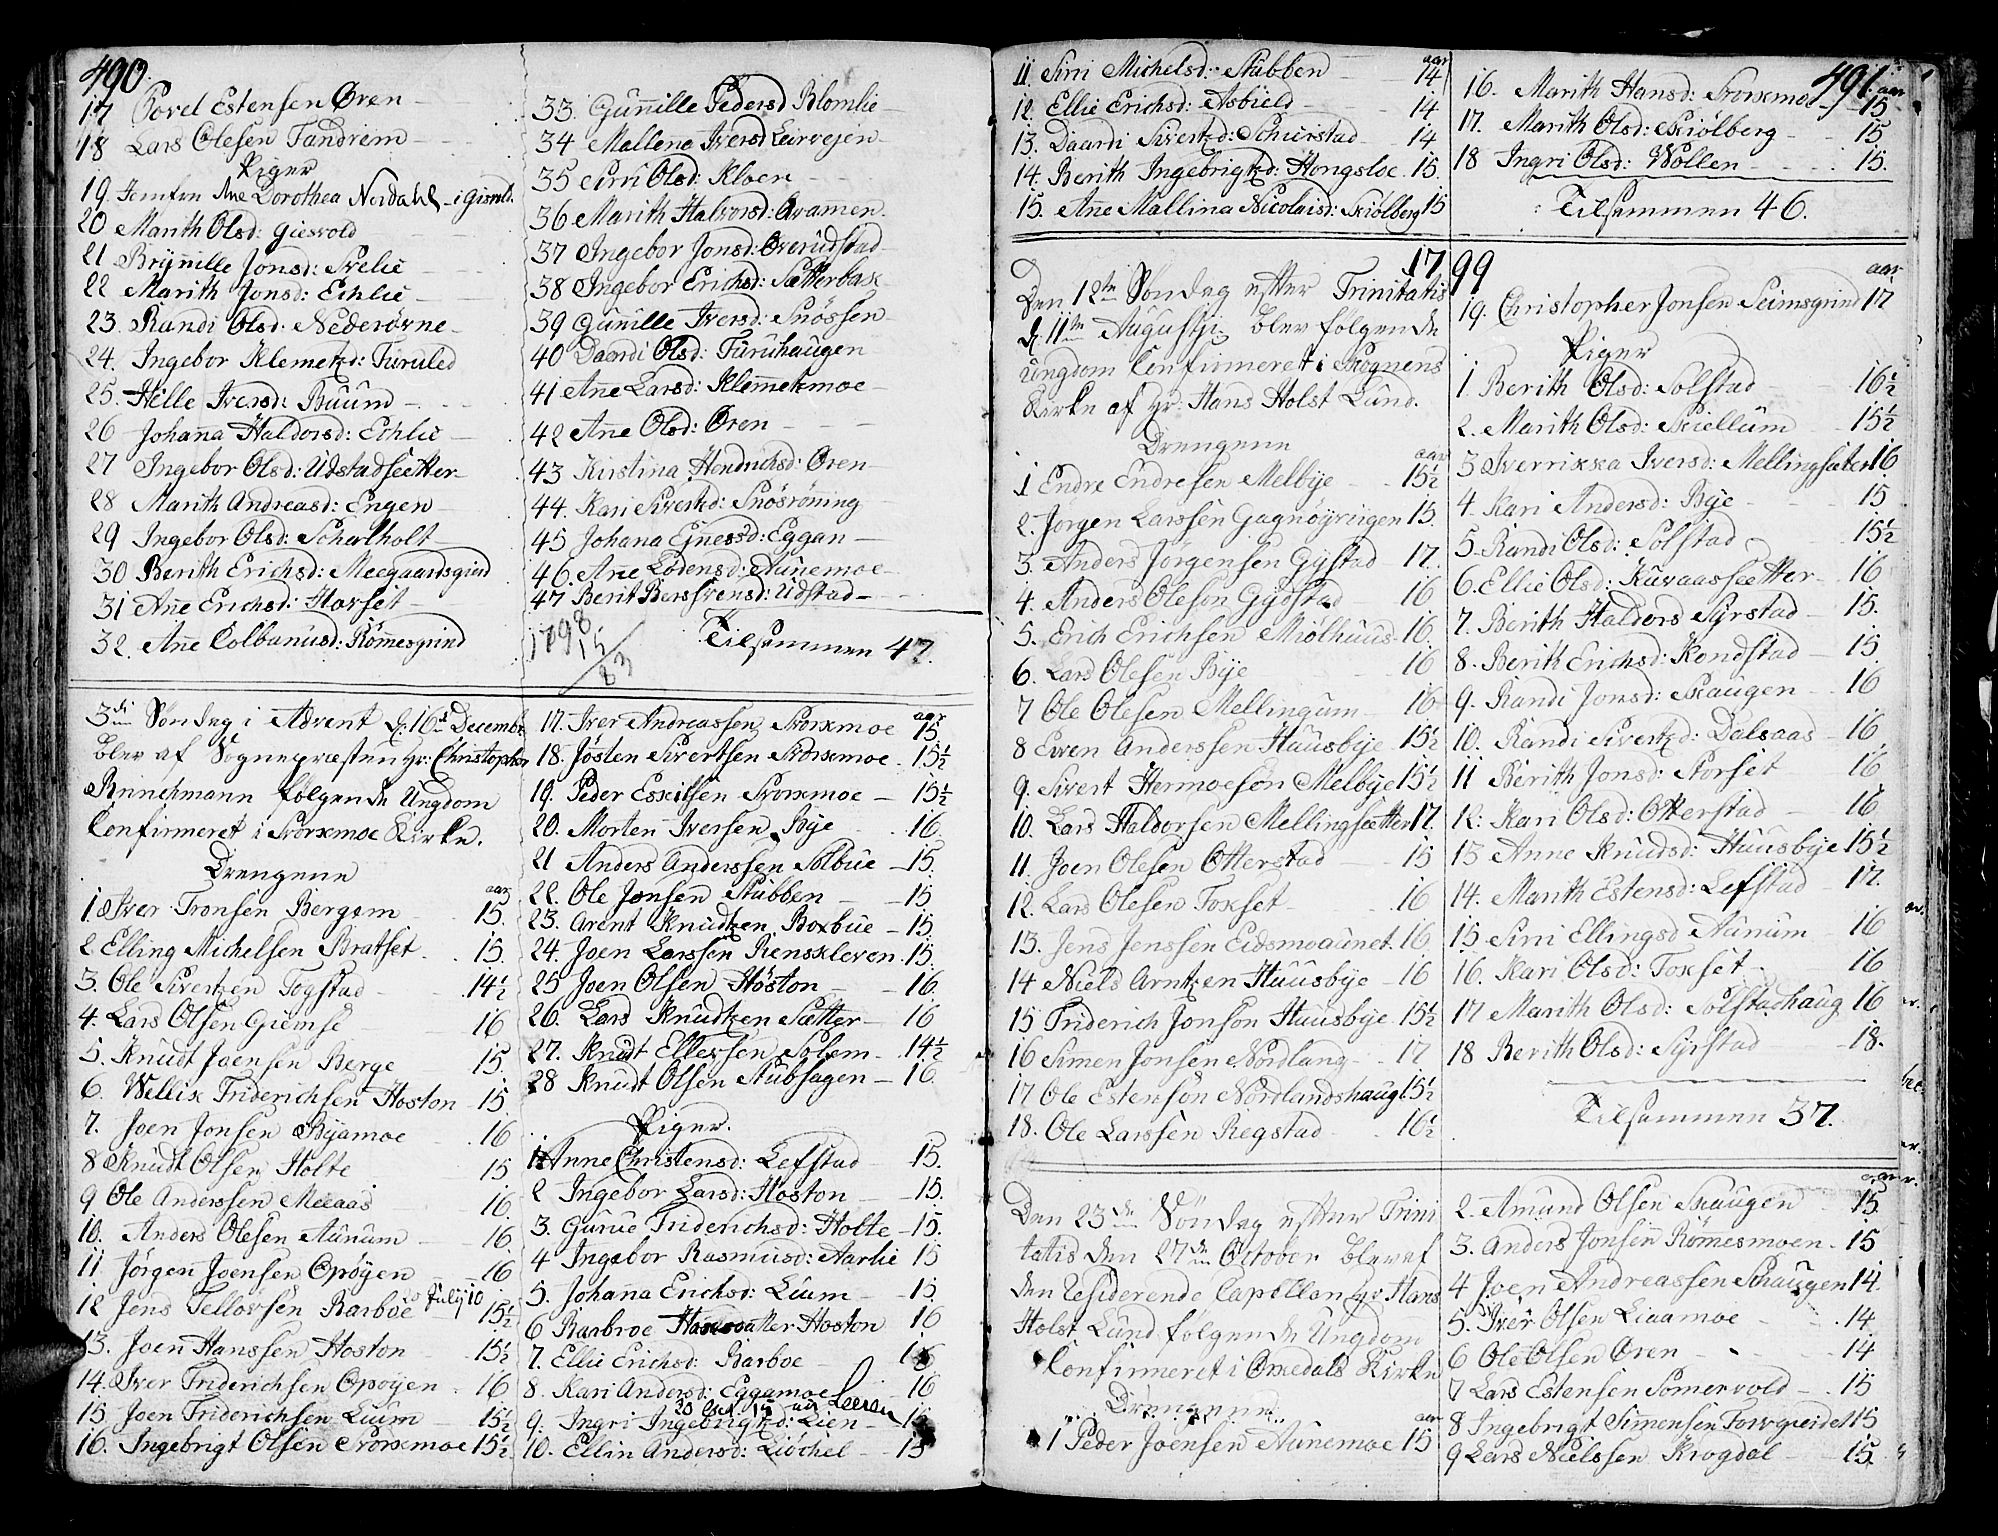 490.
17 Povel Estensen Øren
18 Lars Olesen Tandrem
Piger
19. Jomfru Ane Dorothea Nordahl i Gisvold.
20 Marith Olsd: Giesvold
21 Brÿnille Jonsd: Svelie
22 Marith Jonsd: Echlie
23. Randi Olsd: Nederøvne
24. Ingebor Klemetzd: Furuled
25. Hille Iversd: Buum
26 Johanna Haldorsd: Echlie
27 Ingebor Olsd: Udstadsætter
28 Marith Andreasd: Engen
29 Ingebor Olsd: Scharlholt
30 Berith Erichsd: Meegaardsgind
31 Ane Erichsd: Horset
32. Ane Colbanusd: Rømmesgrind
33. Gunnille Pedersd Blomlie
34 Mallena Iversd Leirvejen
35 Sirri Olsd: Kloen
36 Marith Halvorsd: Qvamen
37 Ingebor Jonsd: Overudstad
38 Ingebor Erichsd: Sætterbak
39 Gunille Iversd: Snössen
40 Daardi Olsd: Furuhaugen
41 Ane Larsd: Klemmetmoe
42 Ane Olsd: Øren
43 Kirstina Hendrichsd: Øren
44. Kari Sivertzd: Snösröning
45 Johana Ejnersd: Eggan
46. Ane Lodensd: Aunemoe
47 Berit Berssvensd: Udstad
1798
15
/
83
Tilsammen 47.
3die Søndag i Advent d: 16de Decembr
blev af Sognepræsten Hr: Christopher
Brinchmann følgende Ungdom
Confirmeret i Svorkmoe Kirke.
Drengene
aar
1. Iver Tronsen Bergem 15.
2 Elling Michelsen Bratset 15.
3. Ole Sivertzen Togstad 14½
4. Lars Olsen Giemse 16
5. Knudt Joensen Berge 15.
6. Wellik Friderichsen Hoston 15.
7. Joen Jonsen Byamoe 16
8 Knudt Olsen Holte 15
9 Ole Anderssen Meeaas 16.
10. Anders Olesen Aunum 16.
11 Jörgen Joensen Opøyen 16
12 Jens Tellovsen Barboe 20 July 10 15½
13. Joen Hanssen Hoston 15½
14. Iver Friderichsen Opøyen 16
15 Joen Friderichsen Luum 15½
16. Ingebrigt Olsen Svorkmoe 15½.
aar
17. Iver Andreassen Svorkmoe 15.
18. Jøsten Sivertsen Svorkmoe 15½
19. Peder Eskilsen Svorkmoe 15½
20. Morten Iversen Bye 16.
21 Anders Anderssen Solbue 15.
22. Ole Jonsen Stubben 15
23. Arent Knudtzen Boxbue 15.
24. Joen Larssen Renskleven 15.
25 Joen Olsen Høston 16.
26. Lars Knudtzen Sætter 16
27. Knudt Ellevsen Solem 14½
28 Knudt Olsen Aubsagen 16.
Piger.
1 Anne Christensd: Lefstad 15.
2 Ingebor Larsd: Hoston 15.
3. Gurue Friderichsd: Holte 15.
4 Ingebor Rasmusd: Aarlie 15
5. Johana Erichsd: Luum 15.
6 Barbroe Hoston 16
7. Ellie Erichsd: Barboe
8. Kari Andersd: Eggamoe 16
9. Ingri Ingebrigtzd: Lien
10. Ellin Andersd: Liöchel 15
491.
aar
11. Sirri Michelsd: Stubben 14
12. Ellie Erichsd: Asbield 14
13. Daardi Sivertzd: Schierstad 14
14. Berith Ingebrigtzd: Hongsloe 15.
15. Ane Mallina Nicolaisd: Skiølberg 15
aar
16. Marith Hansd: Svorkmoe 15.
17. Marith Olsd: Skiølberg 15
18 Ingri Olsd: Wollen 15.
Tilsammen 46.
1799
Den 12te Søndag efter Trinitatis
d: 11te Augustji blev følgende
Ungdom Confirmeret i Skognens
Kirke af Hr: Hans Holst Lund.
Drengene
aar
1 Endre Endresen Melbye 15½
2. Jørgen Larssen Gagnøyriigen 15.
3. Anders Jørgensen Gÿstad 17.
4. Anders Oleson Gydstad 16
5. Erich Erichsen Miølhuus 16.
6. Lars Olesen Bye 16
7 Ole Olesen Mellingum 16
8 Even Anderssen Huusbye 15½
9. Sivert Hermoeson Melbye 15½
10. Lars Haldorsen Mellingsætter 17.
11. Joen Olesen Otterstad 15
12. Lars Olesen Foxset 16
13. Jens Jenssen Eidsmoaunet 16
14 Niels Arntzen Huusbye 16
15 Friderich Jonson Huusbye 15½
16 Simen Jonsen Nordlang 17
17 Ole Estenson Nordlandshaug 15½
18. Ole Larssen Riegstad 16½
aar
19. Christopher Jonsen Seimsgrind 17
Piger
1 Berith Olsd: Solstad 16½
2. Marith Olsd: Skiellum 15½
3 Sverrikka Iversd: Mellingsæter 16
4. Kari Andersd: Bye 15
5. Randi Olsd: Solstad 15½
6. Ellie Olsd: Kuraassætter 16
7. Berith Haldors Syrstad 15.
8. Berith Erichsd: Kondstad 15
9. Randi Jonsd: Skaugen 16
10. Randi Sivertzd: Dalsaas 16
11 Berith Jonsd: Storset 16
12: Kari Olsd: Otterstad 16.
13 Anne Knudsd: Huusbye 15½
14. Marith Estensd: Lefstad 17.
15 Sirri Ellingsd Aunum 16
16. Kari Olsd: Foxset 16
17 Marith Olsd: Solstadhaug 16
18 Berith Olsd: Syrstad 18.
Tilsammen 37.
Den 23de Søndag efter Trini
tatis den 27de October blev af
den residerende Capellan Hr Hans
Holst Lund følgende Ungdom
Confirmeret i Orkedals Kirke
Drengene
aar
1 Peder Joensen Aunemoe 15
aar
2. Amund Olsen Skaugen 15.
3. Anders Jonsen Rømmesmoen 15
4 Joen Andreassen Skaugen 14.
5. Iver Olsen Liaamoe 14
6 Ole Olsen Øren 14
7 Lars Estensen Somervold 15
8 Ingebrigt Simensen Forrgieidet 15
9 Lars Nielssen Krogdal 15.